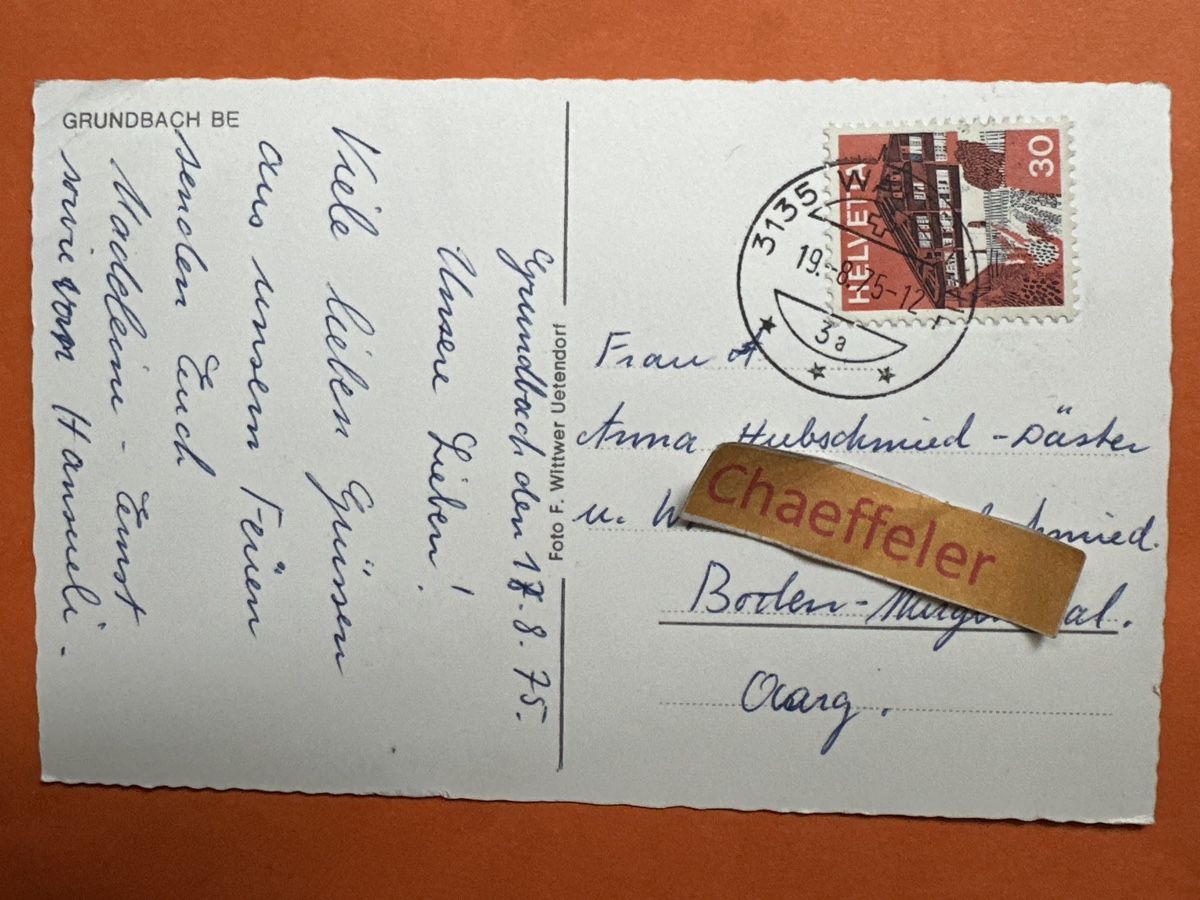 GRUNDBACH BE
Grundbach den 18.8.75.
Unsere Lieben!
Viele lieben Grüssen
aus unsern Ferien
senden Euch
Madeleine - Ernst
sowie von Hansueli.
Foto F. Wittwer Uetendorf
HELVETIA
30
3135 WA
19.-8.75-12
3a
Frau
Anna Hubschmied-Däster
u.
Chaeffeler
Boden-
Aarg.